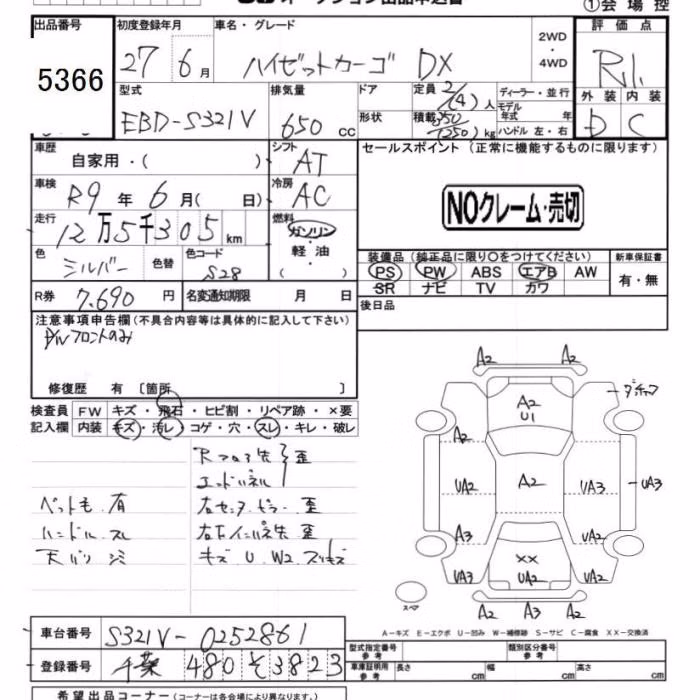 ①会場控
出品番号
5366
初度登録年月
27年 6月
車名・グレード
ハイゼットカーゴ DX
2WD
・
4WD
評価点
R1.
外装 内装
D C
型式
EBD-S321V
排気量
650 cc
ドア
形状
定員 2/(4)人
積載 350/(250)kg
ディーラー・並行
モデル年式 年
ハンドル 左・右
車歴
自家用・( )
シフト
AT
車検
R9年 6月( 日)
冷房
AC
走行
12万5千305km
燃料
ガソリン
・
軽油
・
( )
色
シルバー
色替
色コード
S28
R券 7,690円
名変通知期限 月 日
セールスポイント(正常に機能するものに限ります)
NOクレーム・売切
装備品(純正品に限り〇をつけてください)
PS PW ABS エアB AW
SR ナビ TV カワ
新車保証書
有・無
後日品
注意事項申告欄(不具合内容等は具体的に記入して下さい)
P/Wフロントのみ
修復歴 有〔箇所 〕
検査員
記入欄
FW キズ・飛石・ヒビ割・リペア跡・×要
内装 キズ・汚レ・コゲ・穴・スレ・キレ・破レ
歪
エンドパネル
ペット毛 有
右センターピラー 歪
ハンドル スレ
歪
天バリ シミ
キズ U W2 スリキズ
A2 A2
A2
U1
A2
UA2
A2
UA3
UA3
A3
UA2
UA3
XX
UA2
UA2
A2 A3 A2
スペア
A-キズ E-エクボ U-凹み W-補修跡 S-サビ C-腐食 XX-交換済
車台番号 S321V-0252861
登録番号 千葉 480 そ 3823
型式指定番号
参考
類別区分番号
参考
車庫証明用
参考
長さ cm 幅 cm 高さ cm
希望出品コーナー(コーナーは各会場により異なります。)